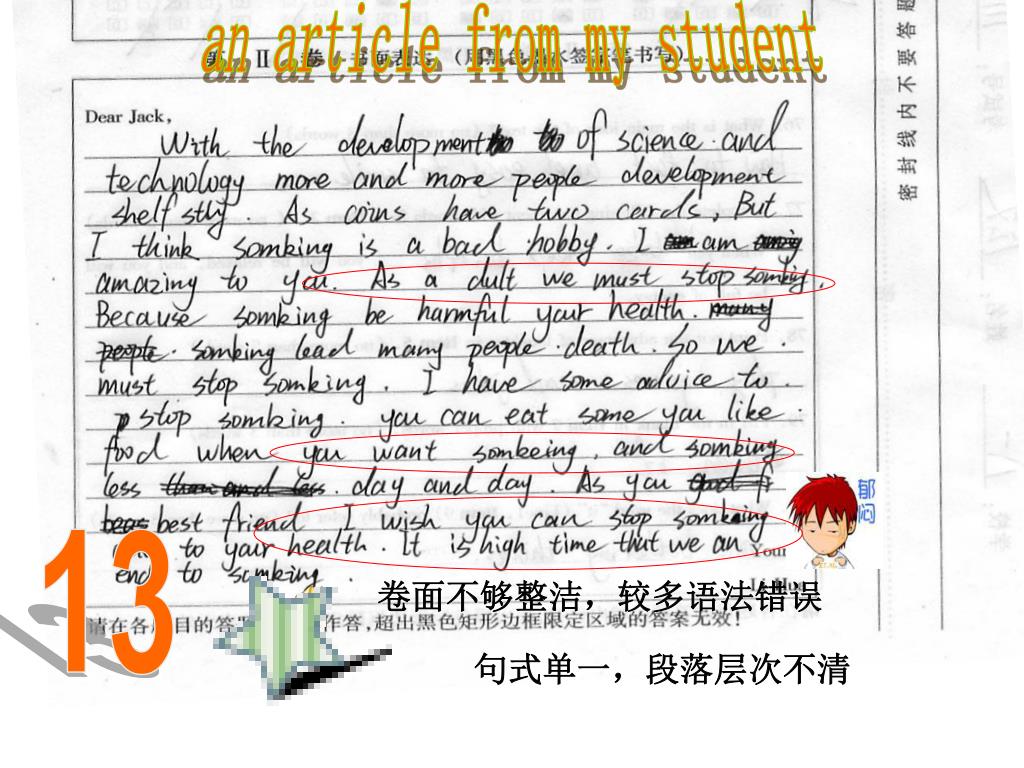 an article from my student
第 II 卷 书面表达 (用黑色墨水签字笔书写)
Dear Jack,
With the development of science and
technology more and more people development
shelf stly. As coins have two cards, But
I think sombing is a bad hobby. I am
amazing to you. As a dult we must stop sombing.
Because sombing be harmful your health. many
people. sombing lead many people death. So we
must stop sombing. I have some advice to
stop sombing. you can eat some you like
food when you want sombeing, and sombing
less than and less. day and day. As you
best friend. I wish you can stop sombing
to your health. It is high time that we an
end to sombing.
Your
Li Hua
密封线内不要答题
郁闷
13
卷面不够整洁，较多语法错误
请在各 目的答 作答,超出黑色矩形边框限定区域的答案无效!
句式单一，段落层次不清